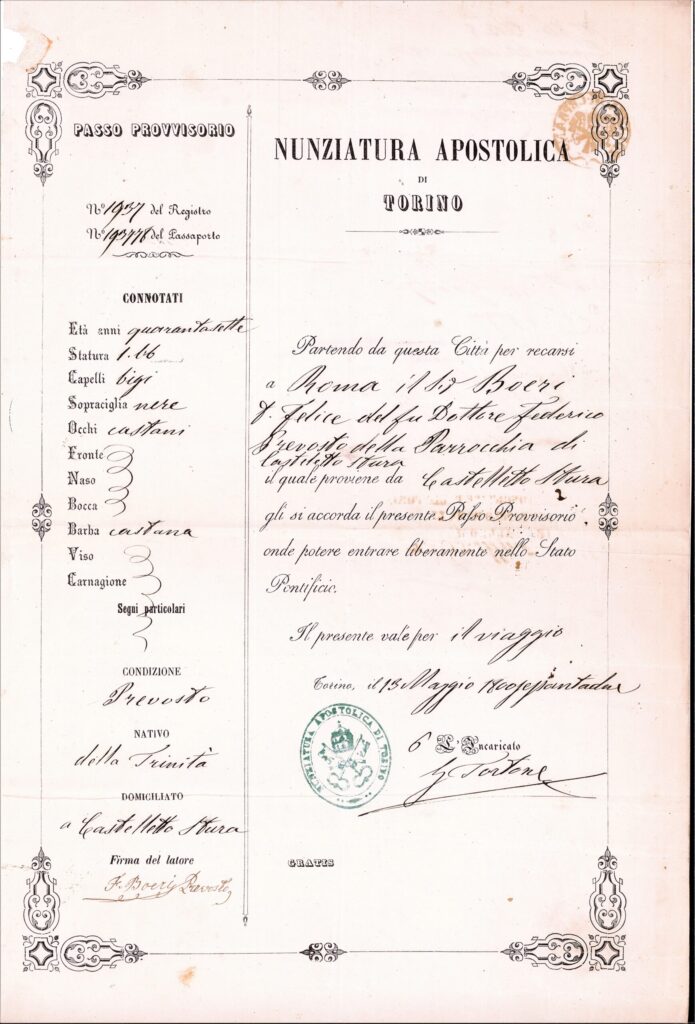 PASSO PROVVISORIO
Nº 1937 del Registro
Nº 193778 del Passaporto
CONNOTATI
Età anni quarantasette
Statura 1.66
Capelli bigi
Sopraciglia nere
Occhi castani
Fronte
Naso
Bocca
Barba castana
Viso
Carnagione
Segni particolari
CONDIZIONE
Prevosto
NATIVO
della Trinità
DOMICILIATO
a Castelletto Stura
Firma del latore
F. Boeri Prevosto
NUNZIATURA APOSTOLICA
DI
TORINO
Partendo da questa Città per recarsi
a Roma il Boeri
D. Felice del fu Dottore Federico
Prevosto della Parrocchia di
Castelletto Stura
il quale proviene da Castelletto Stura
gli si accorda il presente Passo Provvisorio
onde potere entrare liberamente nello Stato
Pontificio.
Il presente vale per il viaggio
Torino, il 13 Maggio
L'Incaricato
Tortone
NUNZIATURA APOSTOLICA DI TORINO
GRATIS